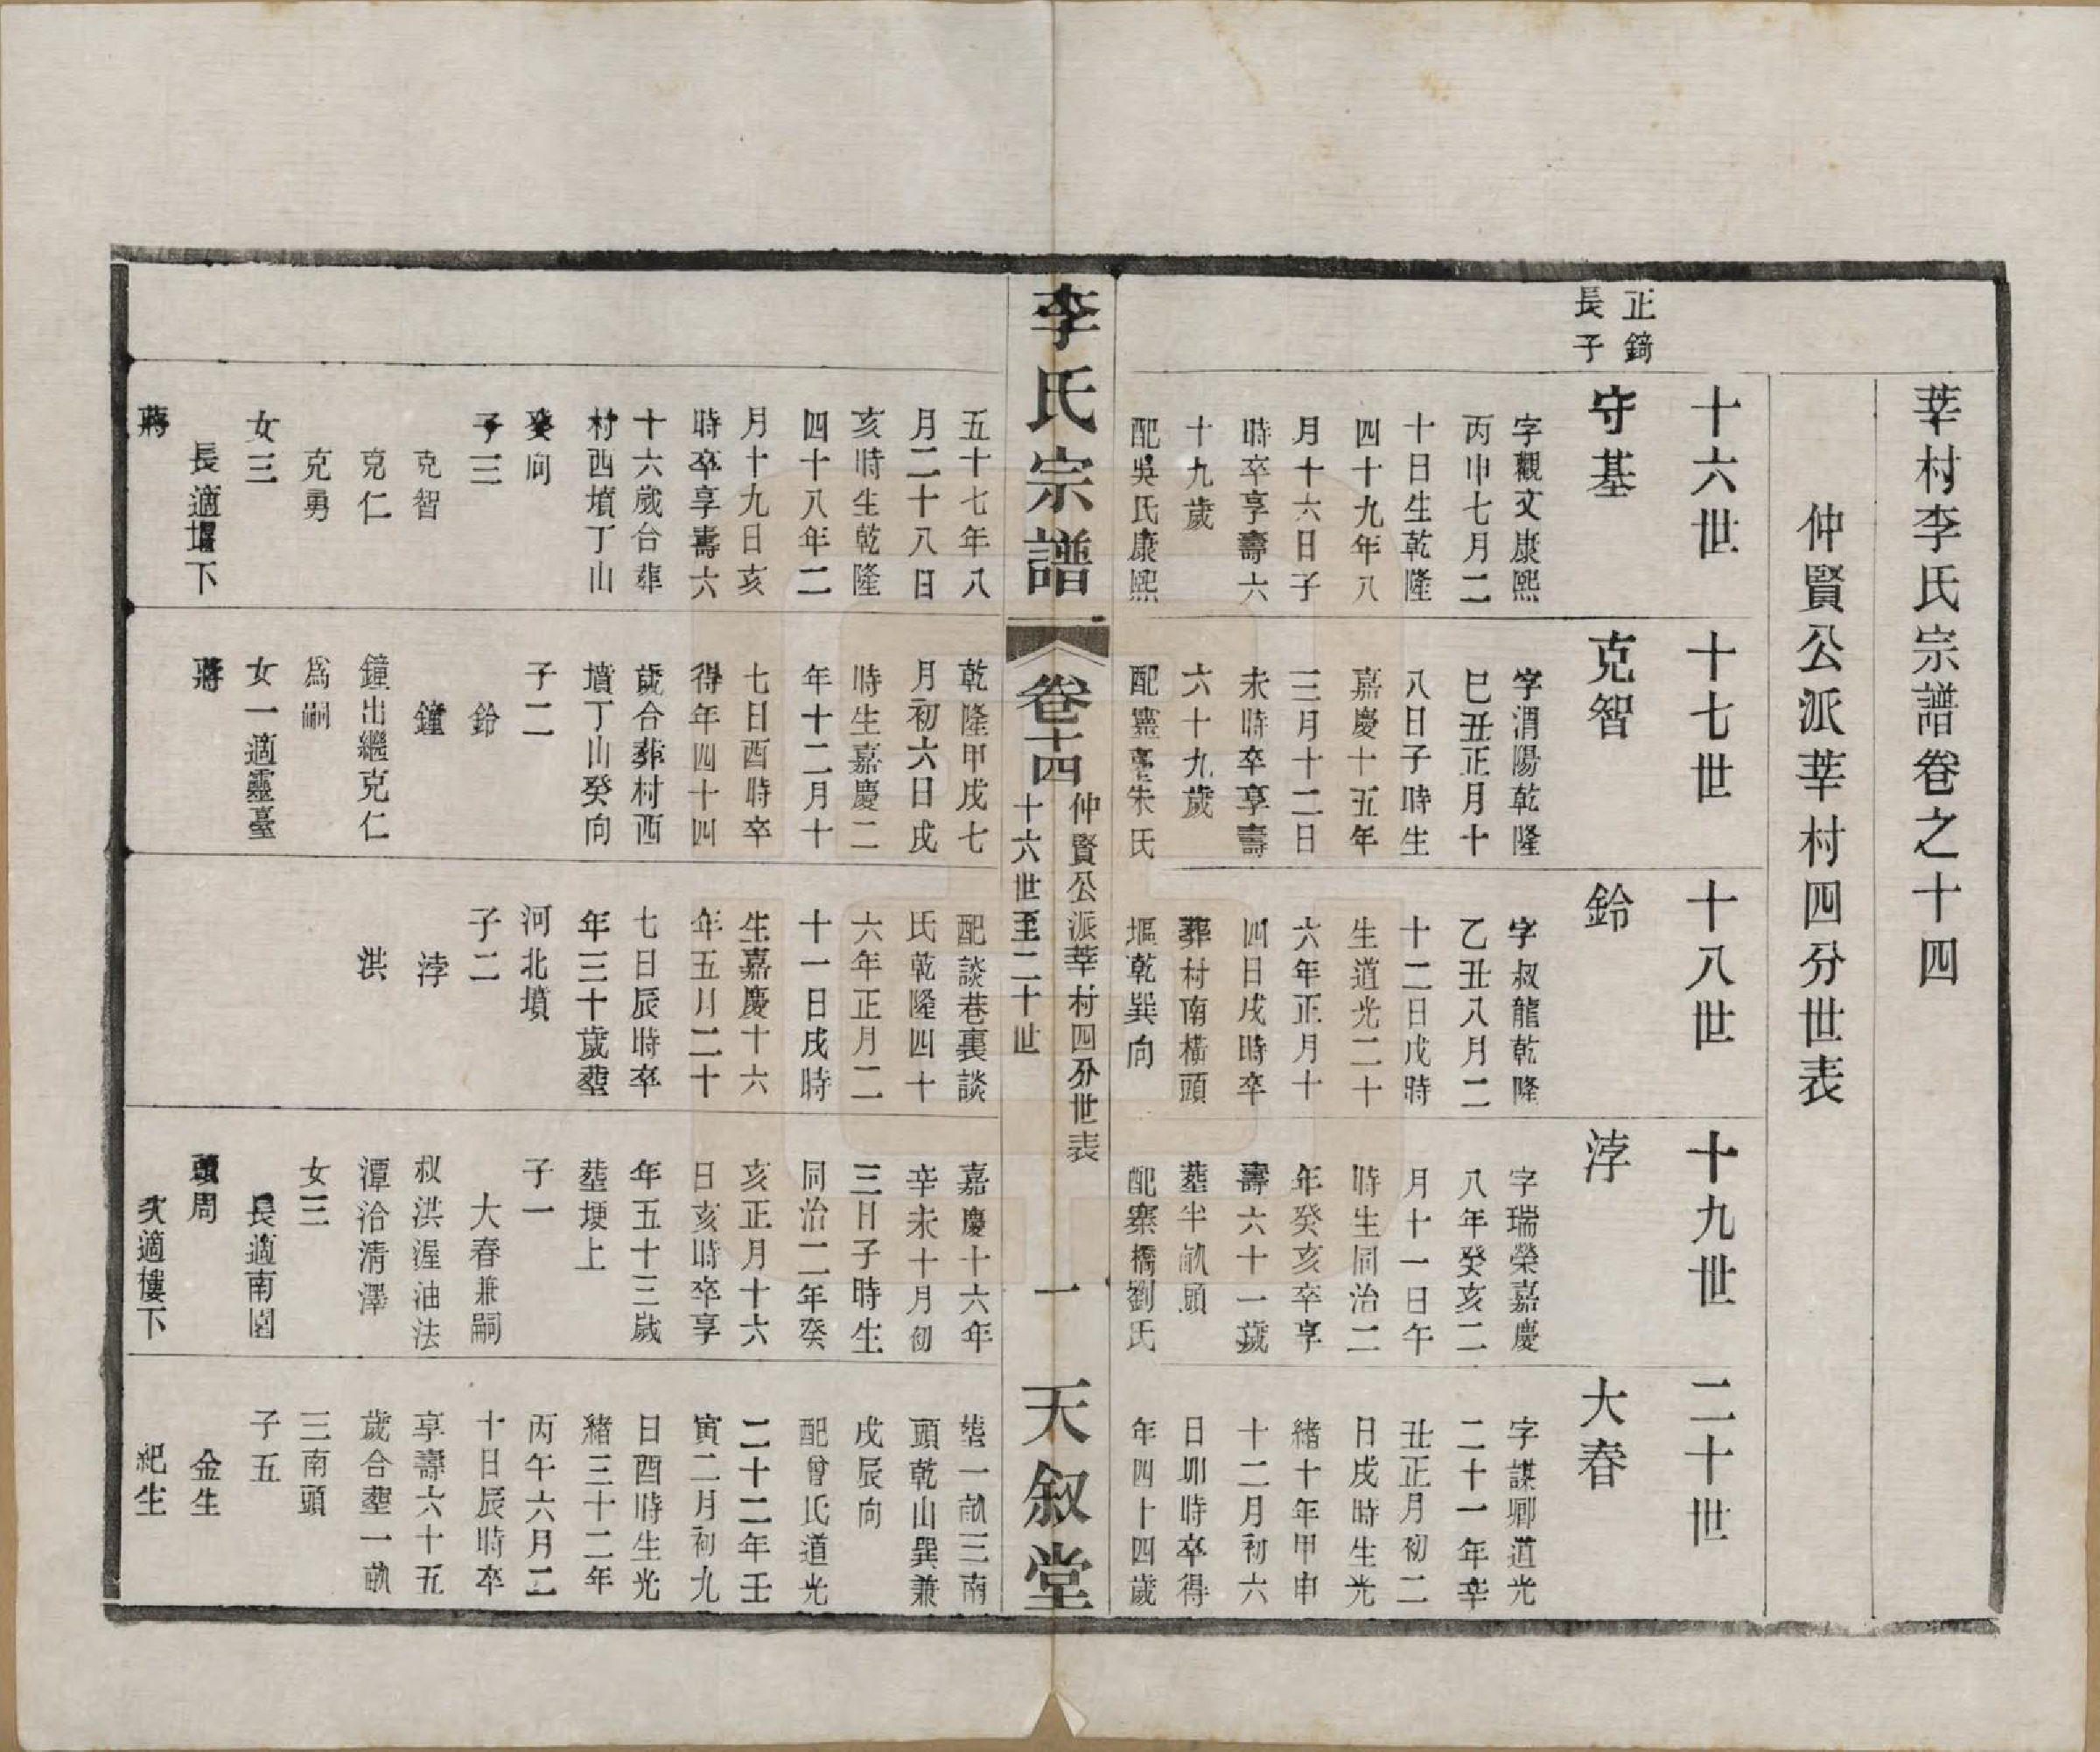 莘村李氏宗譜卷之十四
仲賢公派莘村四分世表
十六世
十七世
十八世
十九世
二十世
正錡
長子
守基
字觀文康熙
丙申七月二
十日生乾隆
四十九年八
月十六日子
時卒享壽六
十九歲
配吳氏康熙
五十七年八
月二十八日
亥時生乾隆
四十八年二
月十九日亥
時卒享壽六
十六歲合葬
村西墳丁山
癸向
子三
克智
克仁
克勇
女三
長適堰下
蔣
克智
字渭陽乾隆
巳丑正月十
八日子時生
嘉慶十五年
三月十二日
未時卒享壽
六十九歲
配靈臺朱氏
乾隆甲戌七
月初六日戌
時生嘉慶二
年十二月十
七日酉時卒
得年四十四
歲合葬村西
墳丁山癸向
子二
鈴
鐘
鐘出繼克仁
為嗣
女一適靈臺
蔣
鈴
字叔龍乾隆
乙丑八月二
十二日戌時
生道光二十
六年正月十
四日戌時卒
葬村南橫頭
塸乾巽向
配談巷裏談
氏乾隆四十
六年正月二
十一日戌時
生嘉慶十六
年五月二十
七日辰時卒
年三十歲塟
河北墳
子二
浡
洪
浡
字瑞榮嘉慶
八年癸亥二
月十一日午
時生同治二
年癸亥卒享
壽六十一歲
塟半畝頭
配寨橋劉氏
嘉慶十六年
辛未十月初
三日子時生
同治二年癸
亥正月十六
日亥時卒享
年五十三歲
塟埂上
子一
大春兼嗣
叔洪渥油法
潭洽清澤
女三
長適南園
頭周
次適樓下
大春
字謀卿道光
二十一年辛
丑正月初二
日戌時生光
緒十年甲申
十二月初六
日卯時卒得
年四十四歲
塟一畝三南
頭乾山巽兼
戌辰向
配曾氏道光
二十二年壬
寅二月初九
日酉時生光
緒三十二年
丙午六月二
十日辰時卒
享壽六十五
歲合塟一畝
三南頭
子五
金生
紀生
李氏宗譜
卷十四
仲賢公派莘村四分世表
十六世至二十世
一
天敘堂